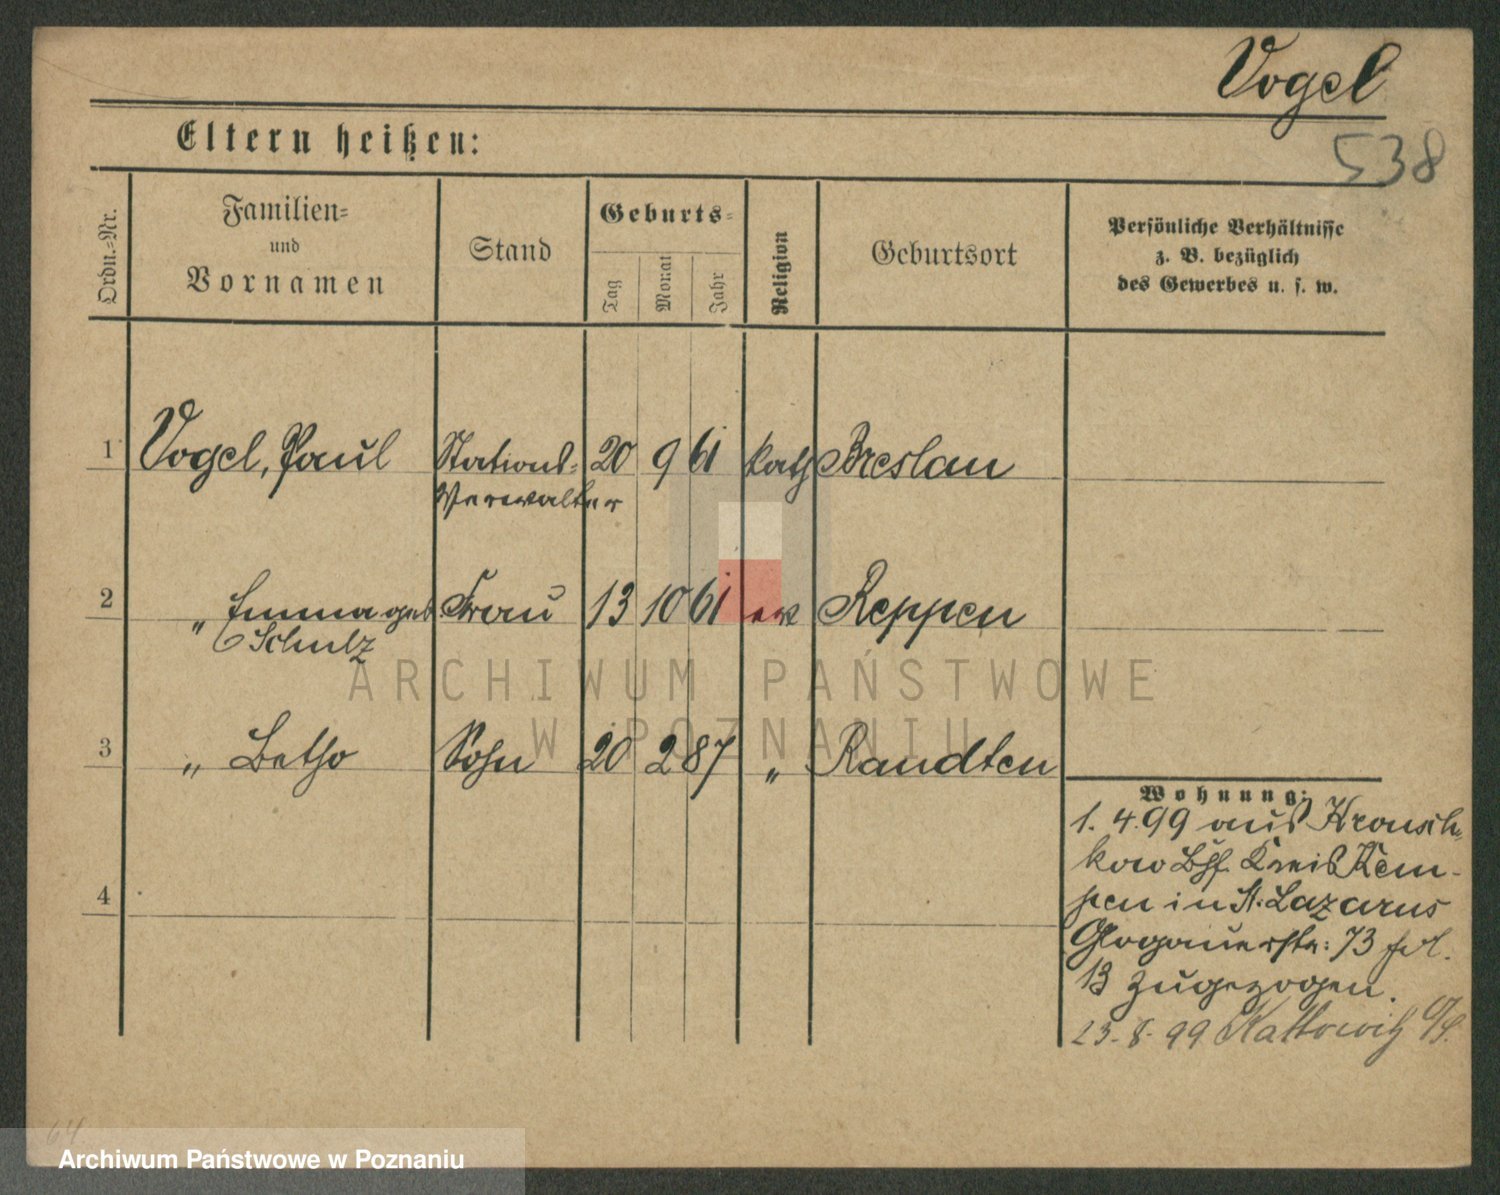 Vogel
538
Eltern heißen:
Ordn.-Nr.
Familien-
und
Vornamen
Stand
Geburts-
Tag
Monat
Jahr
Religion
Geburtsort
Persönliche Verhältnisse
z. B. bezüglich
des Gewerbes u. s. w.
1 Vogel, Paul Stations- 20 9 61 kath Breslau
Verwalter
2 " Emma geb Frau 13 10 61 ev Reppen
Schulz
3 " Betho Sohn 20 2 87 " Raudten
4
Wohnung:
1. 4. 99 aus Krausch-
kow Bhf. Kreis Kem-
pen in St. Lazarus
Glogauerstr: 73
13 zugezogen.
23. 8. 99 Kattowitz O/S.
64
ARCHIWUM PAŃSTWOWE
W POZNANIU
Archiwum Państwowe w Poznaniu